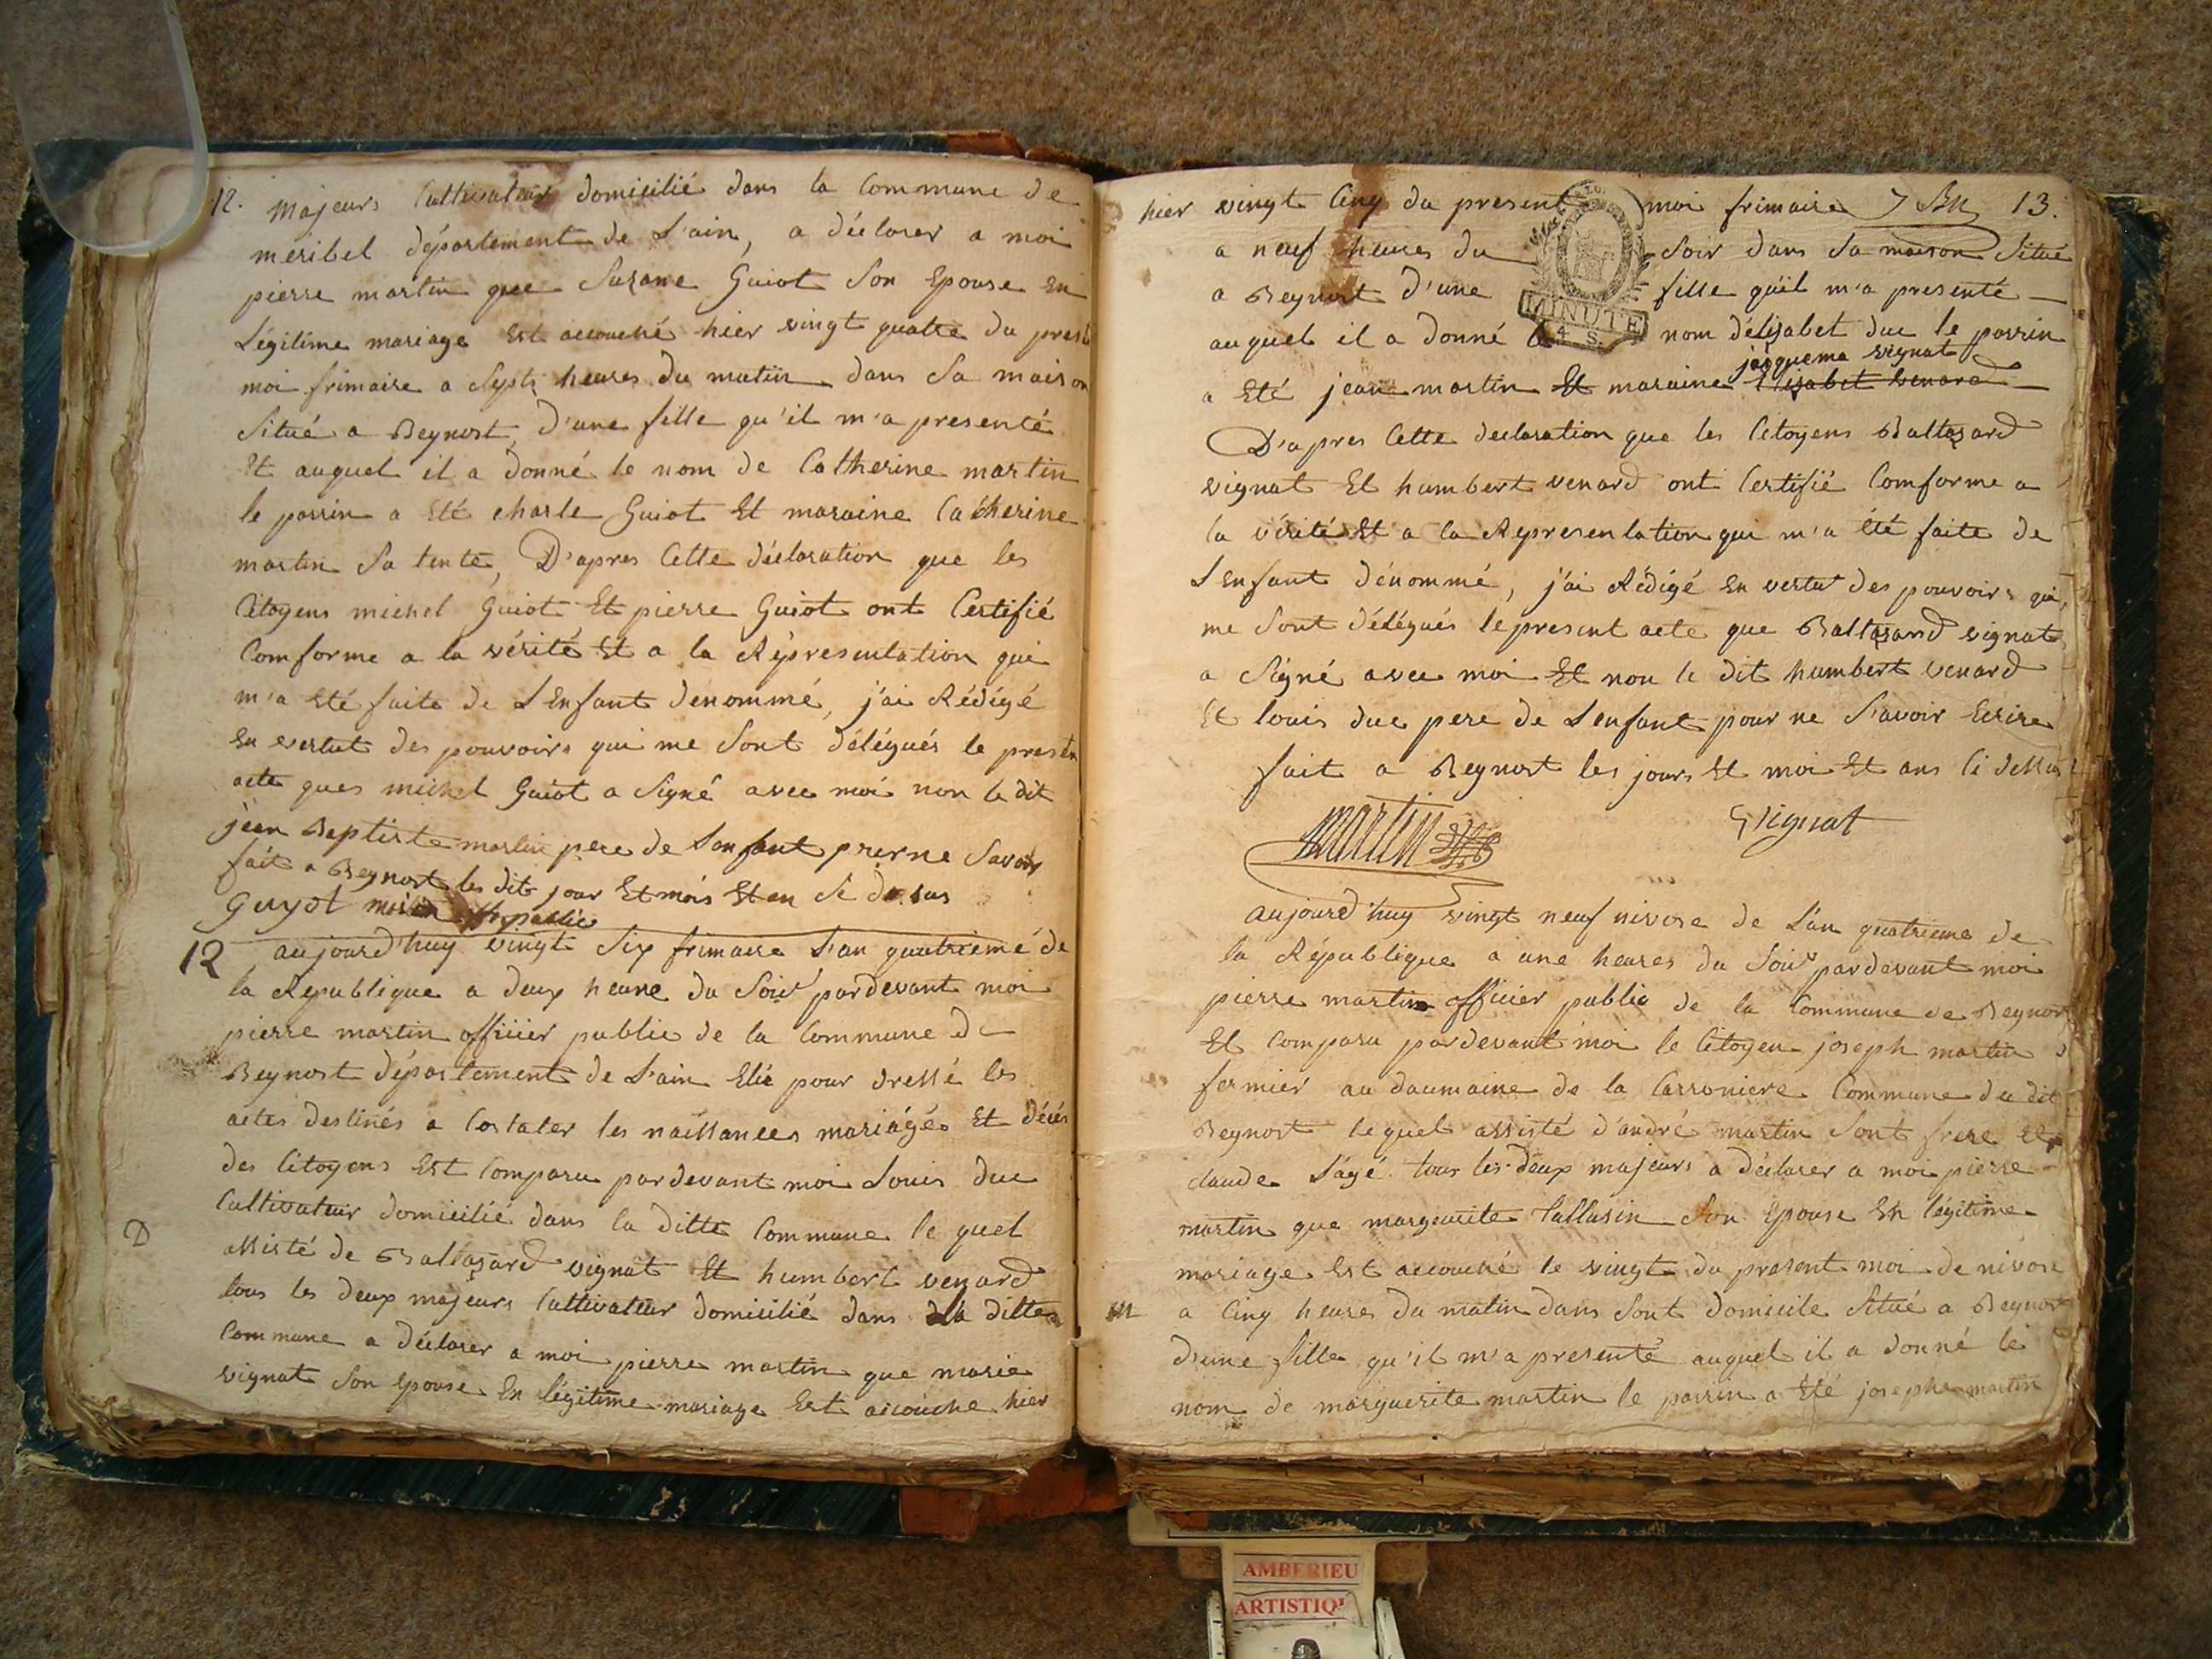 12.
majeurs Cultivateur domicilié dans la Commune de
meribel département de L'ain, a déclarer a moi
pierre martin que Suzane Guiot Son Epouse En
Légitime mariage Est accouché hier vingt quatre du prest
moi frimaire a Sept heures du matin dans Sa maison
Situé a Beynost, D'une fille qu'il m'a presenté
Et auquel il a donné le nom de Catherine martin
le parrin a Eté charle Guiot Et maraine Catherine
martin Sa tente, D'apres Cette déclaration que les
Citoyens michel Guiot Et pierre Guiot ont Certifié
Comforme a la vérité Et a la Représentation qui
m'a Eté faite de L'Enfant denommé, j'ai Rédigé
En vertut des pouvoirs qui me Sont délégués le presen
acte ques michel Guiot a Signé avec moi non le dit
jean Baptiste martin pere de Lonfant
fait a Beynost les dit jour Et mois Et an
Guyot
12
aujourd'huy vingt Six frimaire L'an quatrieme de
la Republique a deux heure du Soir pardevant moi
pierre martin officier public de la Commune de
Beynost département de L'ain Elie pour dressé les
actes destinés a Costater les naissances mariages Et décés
des Citoyens Est Comparu pardevant moi Louis duc
Cultivateur domicilié dans la ditte Commune le quel
D
assisté de Baltazard vignat Et humbert venard
tous les deux majeurs Cultivateur domicilié dans la ditte
Commune a déclarer a moi pierre martin que marie
vignat Son Epouse En légitime mariage Est accouche hier
13.
hier vingt Cinq du present moi frimaire
a neuf heures du Soir dans Sa maison Situé
a Beynost D'une fille qu'il m'a presenté
auquel il a donné le nom d'élizabet duc le parrin
MINUTE
4 S.
jaqueme vignat
a Eté jean martin Et maraine Elisabet venard
D'apres Cette declaration que les Citoyens Baltazard
vignat Et humbert venard ont Certifié Comforme a
la vérité Et a la Representation qui m'a été faite de
L'Enfant dénommé, j'ai Rédigé En vertut des pouvoirs qui
me Sont délégués le present acte que Baltazard vignat
a Signé avec moi Et non le dit humbert venard
Et louis duc pere de L'enfant pour ne Savoir Ecrire
fait a Beynost les jours Et moi Et ans Ci dessus
martin
Vignat
aujourd'huy vingt neuf nivose de L'an quatrieme de
la République a une heures du Soir pardevant moi
pierre martin officier public de la Commune de Beynost
Et Comparu pardevant moi le Citoyen joseph martin
fermier au daumaine de la Carroniere Commune du dit
Beynost lequel assisté d'andré martin Sont frere Et
claude tous les deux majeurs a déclarer a moi pierre
martin que margeurite Son Epouse En légitime
mariage Est accouché le vingt du present moi de nivose
m
a Cinq heures du matin dans Sont domicile Situé a Beynost
d'une fille qu'il m'a presenté auquel il a donné le
nom de marguerite martin le parrin a Eté josephe martin
AMBERIEU
ARTISTIQ